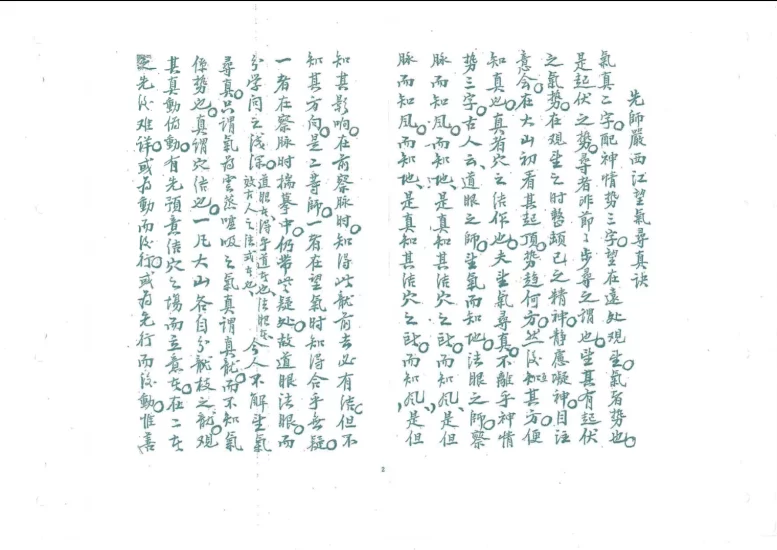 先師嚴西江望氣尋真訣
氣真二字配神情勢三字望在遠处观望氣者势也
是起伏之势尋者非節節步尋之謂也望真有起伏
之氣势在观望之时整頓己之精神静應凝神目注
意会在大山初看其起頂势趋何方然後知其方便
知真也真者穴之结作也夫望氣尋真不離乎神情
势三字古人云道眼之師望氣而知地法眼之師察
脉而知風而知地是真知其结穴之所而知風是但
脉而知風而知地是真知其结穴之所而知風是但
知其影响在前察脉时知得此龍前去必有结但不
知其方向是二等師一者在望氣时知得合乎無疑
一者在察脉时揣摹中仍带些疑处故道眼法眼而
分学问之浅深道眼者得乎道者也法眼者效古人之法也今人不解望氣
尋真只谓氣为雲蒸嘘吸之氣真謂真龍而不知氣
係势也真謂穴结也一凡大山各自分龍枝之龍观
其真動偽動有先預意结穴之場而立意者在二者
之先後难详或为動而後行或为先行而後動惟善
2